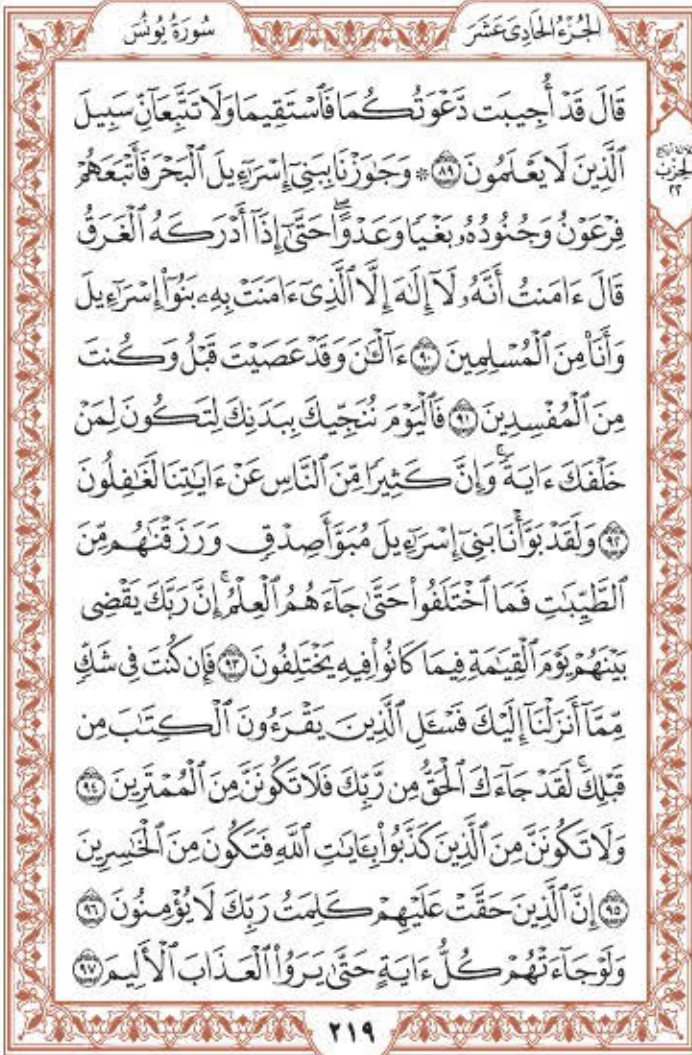 الجُزْءُ الحَادِىَ عَشَرَ
سُورَةُ يُونُسَ
قَالَ قَدْ أُجِيبَت دَّعْوَتُكُمَا فَٱسْتَقِيمَا وَلَا تَتَّبِعَآنِّ سَبِيلَ
ٱلَّذِينَ لَا يَعْلَمُونَ ٨٩ ۞ وَجَٰوَزْنَا بِبَنِىٓ إِسْرَٰٓءِيلَ ٱلْبَحْرَ فَأَتْبَعَهُمْ
ثلاثة أرباع
الحزب
٢٢
فِرْعَوْنُ وَجُنُودُهُۥ بَغْيًا وَعَدْوًا ۖ حَتَّىٰٓ إِذَآ أَدْرَكَهُ ٱلْغَرَقُ
قَالَ ءَامَنتُ أَنَّهُۥ لَآ إِلَٰهَ إِلَّا ٱلَّذِىٓ ءَامَنَتْ بِهِۦ بَنُوٓا۟ إِسْرَٰٓءِيلَ
وَأَنَا۠ مِنَ ٱلْمُسْلِمِينَ ٩٠ ءَآلْـَٰٔنَ وَقَدْ عَصَيْتَ قَبْلُ وَكُنتَ
مِنَ ٱلْمُفْسِدِينَ ٩١ فَٱلْيَوْمَ نُنَجِّيكَ بِبَدَنِكَ لِتَكُونَ لِمَنْ
خَلْفَكَ ءَايَةً ۚ وَإِنَّ كَثِيرًا مِّنَ ٱلنَّاسِ عَنْ ءَايَٰتِنَا لَغَٰفِلُونَ
٩٢ وَلَقَدْ بَوَّأْنَا بَنِىٓ إِسْرَٰٓءِيلَ مُبَوَّأَ صِدْقٍ وَرَزَقْنَٰهُم مِّنَ
ٱلطَّيِّبَٰتِ فَمَا ٱخْتَلَفُوا۟ حَتَّىٰ جَآءَهُمُ ٱلْعِلْمُ ۚ إِنَّ رَبَّكَ يَقْضِى
بَيْنَهُمْ يَوْمَ ٱلْقِيَٰمَةِ فِيمَا كَانُوا۟ فِيهِ يَخْتَلِفُونَ ٩٣ فَإِن كُنتَ فِى شَكٍّ
مِّمَّآ أَنزَلْنَآ إِلَيْكَ فَسْـَٔلِ ٱلَّذِينَ يَقْرَءُونَ ٱلْكِتَٰبَ مِن
قَبْلِكَ ۚ لَقَدْ جَآءَكَ ٱلْحَقُّ مِن رَّبِّكَ فَلَا تَكُونَنَّ مِنَ ٱلْمُمْتَرِينَ ٩٤
وَلَا تَكُونَنَّ مِنَ ٱلَّذِينَ كَذَّبُوا۟ بِـَٔايَٰتِ ٱللَّهِ فَتَكُونَ مِنَ ٱلْخَٰسِرِينَ
٩٥ إِنَّ ٱلَّذِينَ حَقَّتْ عَلَيْهِمْ كَلِمَتُ رَبِّكَ لَا يُؤْمِنُونَ ٩٦
وَلَوْ جَآءَتْهُمْ كُلُّ ءَايَةٍ حَتَّىٰ يَرَوُا۟ ٱلْعَذَابَ ٱلْأَلِيمَ ٩٧
٢١٩